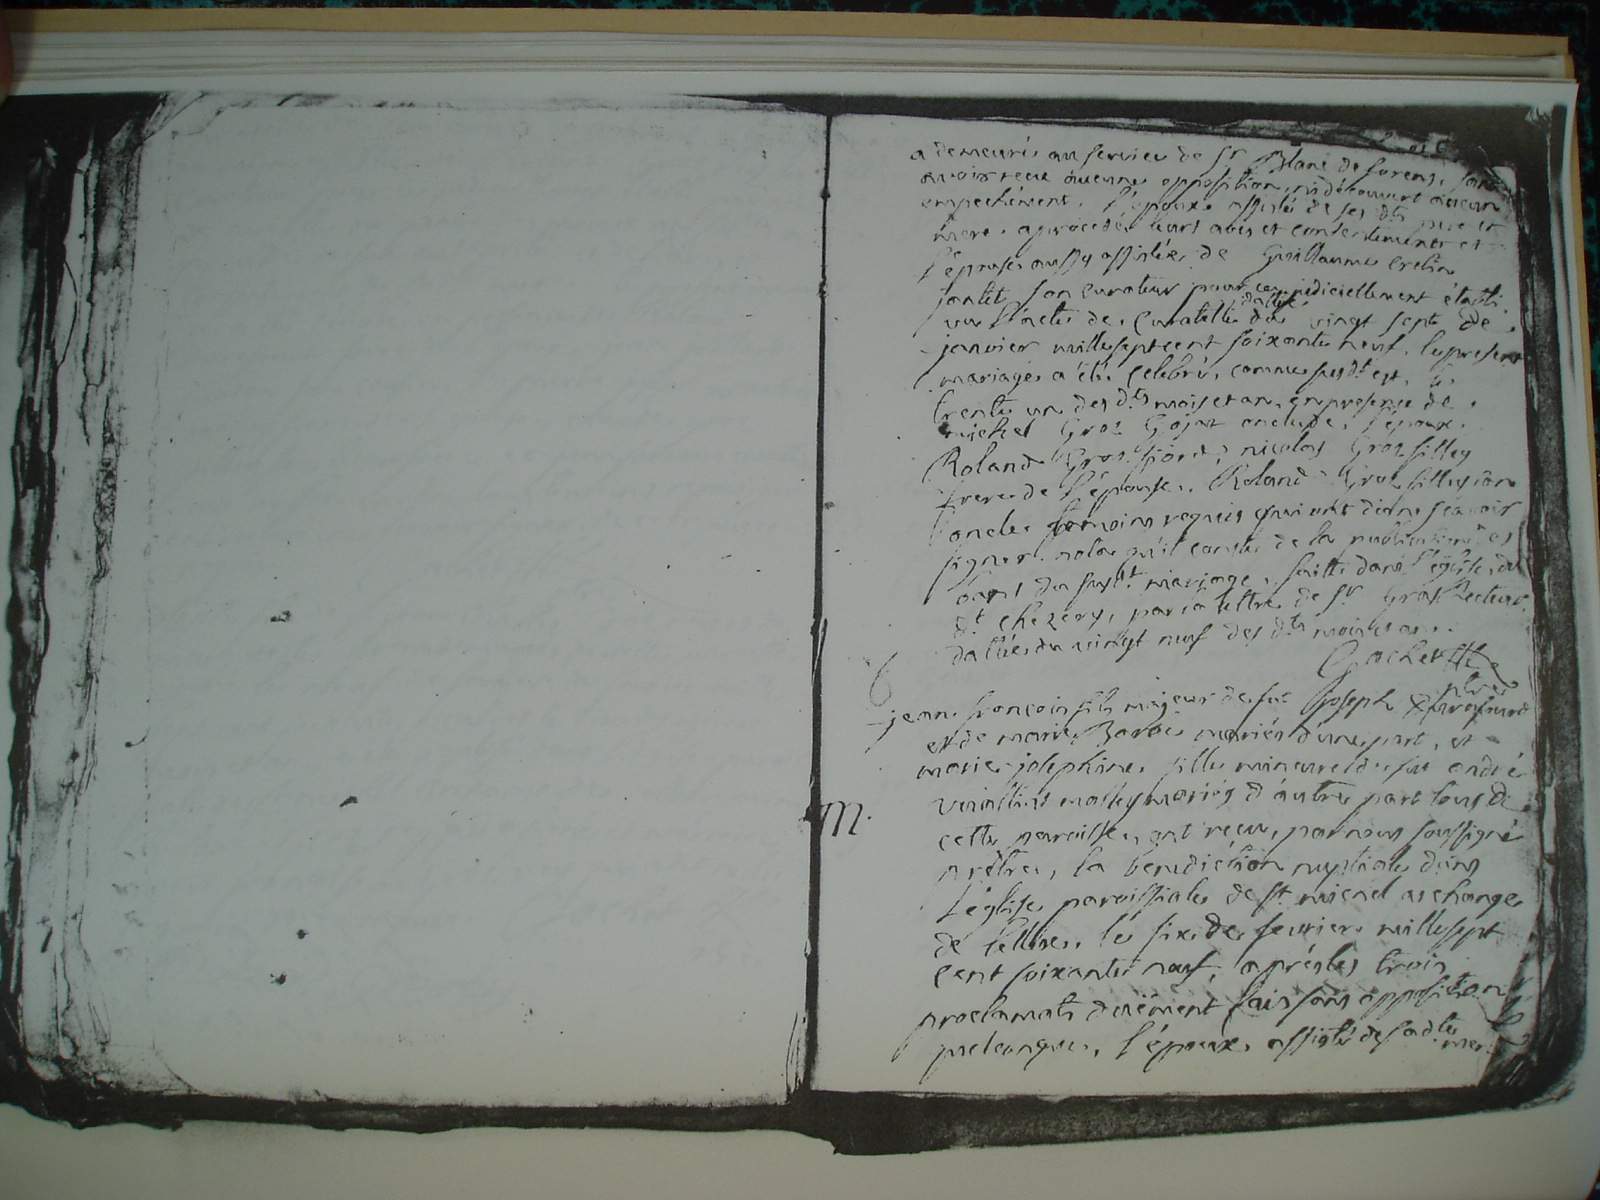 a demeuré au service de Sr Blanc de forens, sans
avoir recu aucune opposition, ni découvert aucun
empechement. l'époux assisté de ses dts pere et
mere. a procédé leurs avis et consentement et
l'épouse aussy assistée de Guillaume cretin
son curateur pour ce judiciellement établi
vu l'acte de Curatelle datté du vingt sept de
janvier mille sept cent soixante neuf. le present
mariage a été celebré, comme susdt est, le
trente un des dts mois et an, en presence de
michel Gros Gojat oncle de l'époux.
Roland Gros nicolas Gros filley
frere de l'épouse. Roland Gros filley son
oncle temoins requis qui ont dit ne scavoir
signer. nota qu'il conste de la publication des
bans du susdt mariage, faitte dans l'église du
dt chezery, par la lettre de Sr Gras Recteur
dattée du vingt neuf des dts mois et an.
6
jean francois fils majeur de feu joseph
et de marie Barbe mariés d'une part, et
marie josephine fille mineure de feu andré
mariés d'autre part tous de
M.
cette paroisse, ont recu, par nous soussigné
prêtre, la benediction nuptiale dans
l'église paroissiale de St michel archange
de lellex, le six de fevrier mille sept
cent soixante neuf, après les trois
proclamats duëment fais sans opposition
quelconque, l'époux assisté de sadte mere